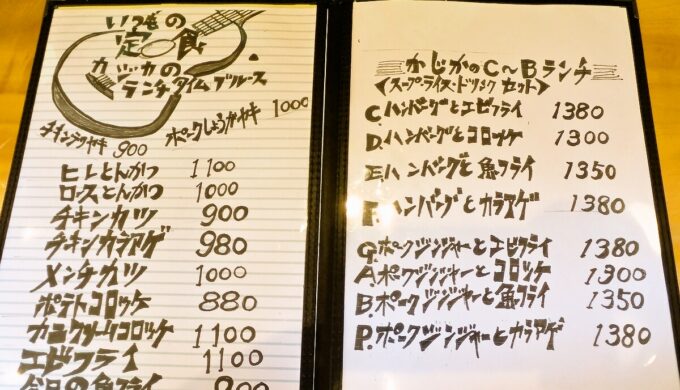 いつもの
定食
カジカの
ランチタイムブルース
チキンテリヤキ 900
ポークしょうがヤキ 1000
ヒレとんかつ 1100
ロースとんかつ 1000
チキンカツ 900
チキンカラアゲ 980
メンチカツ 1000
ポテトコロッケ 880
カニクリームコロッケ 1100
エビフライ 1100
今日の魚フライ 900
かじかのC〜Bランチ
〈スープ・ライス・ドリンクセット〉
C.ハンバーグとエビフライ 1380
D.ハンバーグとコロッケ 1300
E.ハンバーグと魚フライ 1350
F.ハンバーグとカラアゲ 1380
G.ポークジンジャーとエビフライ 1380
A.ポークジンジャーとコロッケ 1300
B.ポークジンジャーと魚フライ 1350
P.ポークジンジャーとカラアゲ 1380